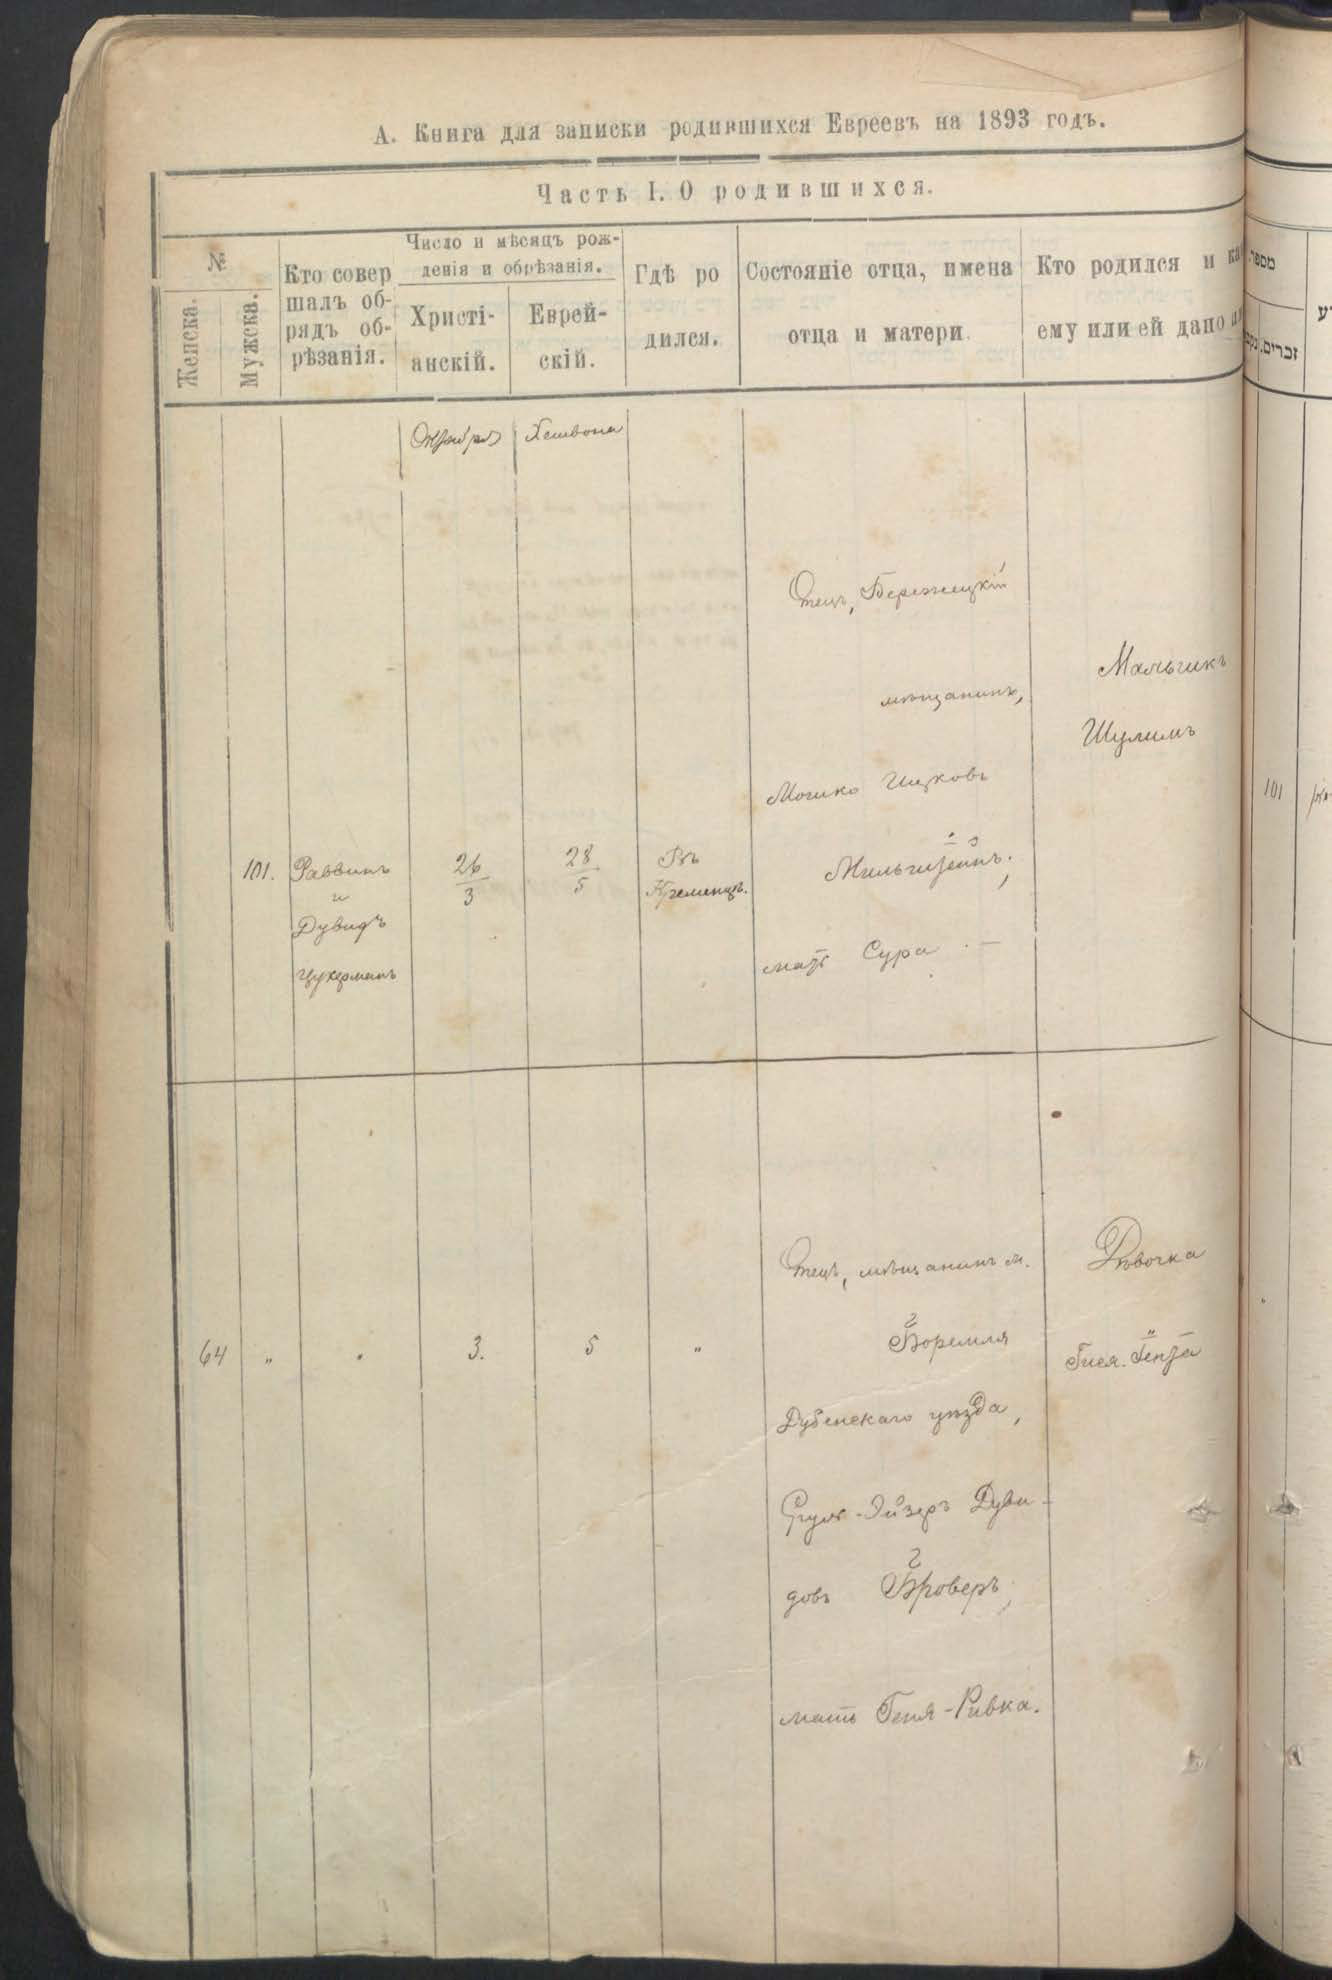 А. Книга для записки родившихся Евреевъ на 1893 годъ.
Часть I. О родившихся.
№
Женска.
Мужска.
Кто совер
шалъ об-
рядъ об-
рѣзанія.
Число и мѣсяцъ рож-
денія и обрѣзанія.
Христі-
анскій.
Еврей-
скій.
Гдѣ ро
дился.
Состояніе отца, имена
отца и матери.
Кто родился и ка
ему или ей дано
Октября
Хешвона
101.
Раввинъ
и
Дувидъ
Цукерманъ
26
3
28
5
Въ
Кременцѣ.
Отецъ, Бережецкій
мѣщанинъ,
Мошко Ицковъ
мать Сура
Мальчикъ
Шулимъ
64
"
"
3.
5
"
Отецъ, мѣщанинъ м.
Боремля
Дубенскаго уѣзда,
Сруль-Эйзеръ Дуви-
довъ Броверъ,
мать Геня-Ривка.
Дѣвочка
Гися.
מספר
זכרים
101